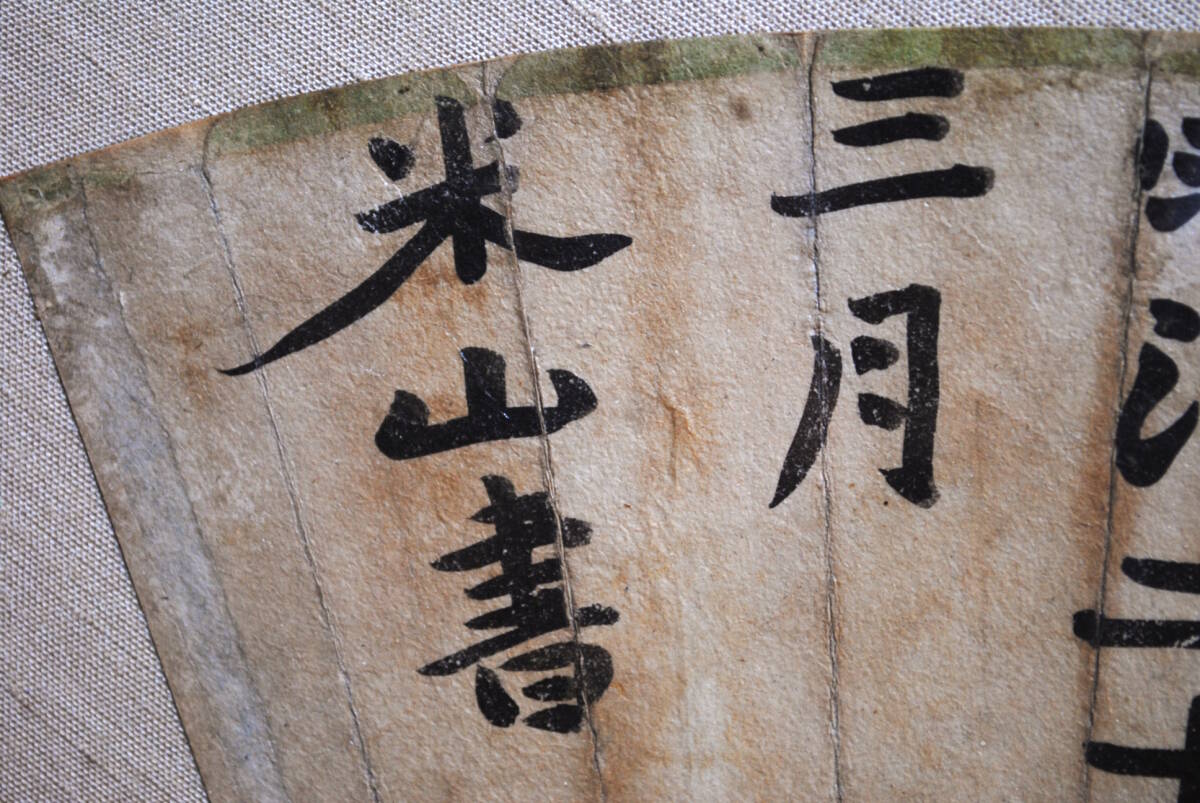 三月
米山書